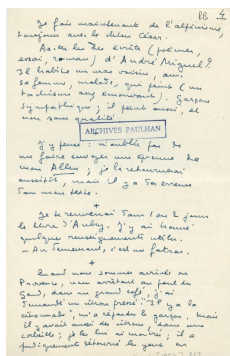 BB
Je fais maintenant de l'alpinisme,
toujours avec le chien César.
As-tu lu des écrits (poèmes,
essai, roman) d'André Miquel ?
Il habite un mas voisin, avec
sa femme, malade, qui peint (un
tachisme assez). Garçon
sympathique ; il peint aussi, et
non sans qualité.
ARCHIVES PAULHAN
J'y pense : n'oublie pas de
me faire envoyer une épreuve de
mon Allen ; je la retournerai
aussitôt, mais il y a des erreurs
dans mon texte.
+
Je te renverrai dans 1 ou 2 jours
le livre d'. J'y ai trouvé
quelques renseignements utiles.
— Au demeurant, c'est un fatras.
+
Quand nous sommes arrivés en
Provence, nous arrêtant au
Gard, dans un grand café, j'ai
demandé un citron pressé. "Il y a la
citronnade", m'a répondu le garçon, mais
il y avait aussi des citrons, dans une
corbeille ; je les lui ai montrés ; il a
pudiquement détourné les yeux, en